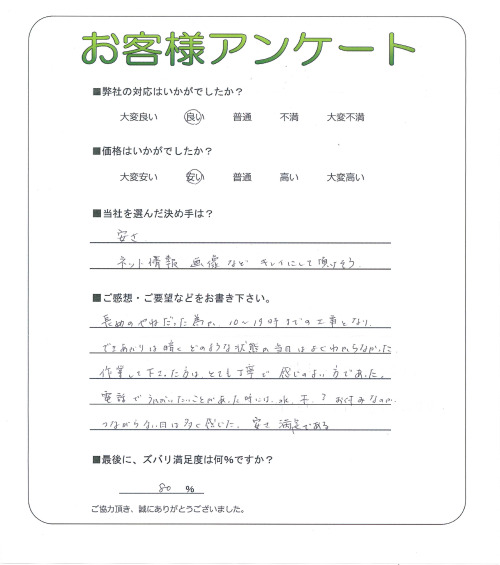 お客様アンケート
■弊社の対応はいかがでしたか？
大変良い 良い 普通 不満 大変不満
■価格はいかがでしたか？
大変安い 安い 普通 高い 大変高い
■当社を選んだ決め手は？
安さ
ネット情報 画像など キレイにして頂けそう
■ご感想・ご要望などをお書き下さい。
長めのやねだった為か、10～19時までの工事となり、
できあがりは暗く どのような状態か当日はよくわからなかった
作業して下さった方は、とても丁寧で 感じのよい方であった。
電話でうかがいたいことがあった時には、水、不、？ お休みなのか、
つながらない日は多く感じた。 安さ 満足である
■最後に、ズバリ満足度は何％ですか？
80 ％
ご協力頂き、誠にありがとうございました。